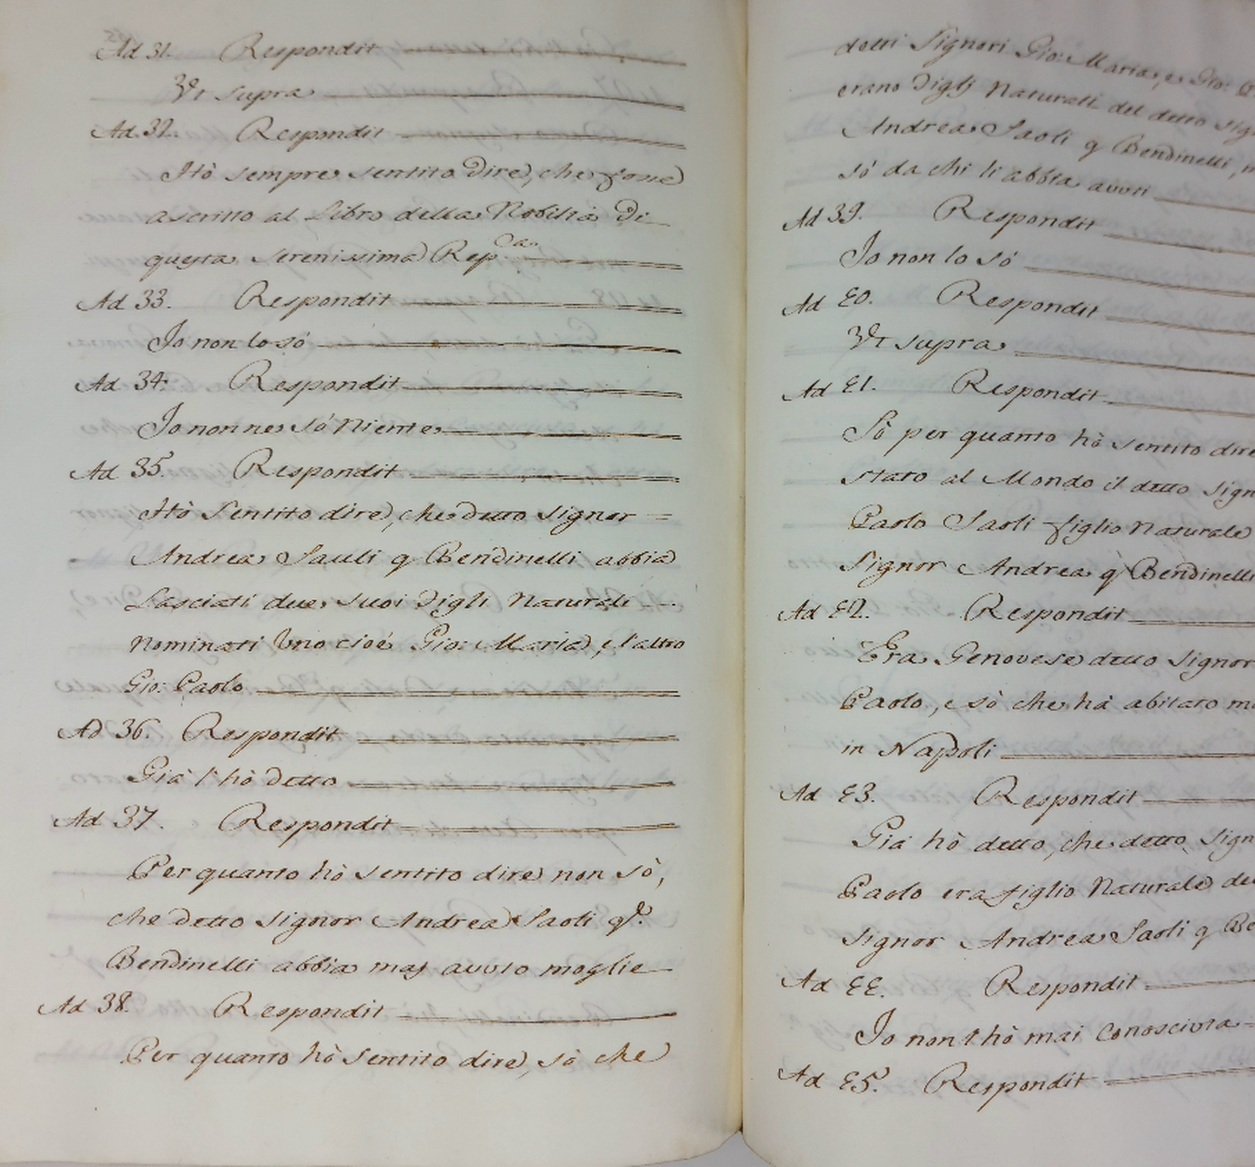 Ad 31. Respondit
Vt supra
Ad 32. Respondit
Hò sempre sentito dire, che fosse
ascritto al Libro della Nobiltà di
questa Serenissima Rep.ca
Ad 33. Respondit
Io non lo só
Ad 34. Respondit
Io non ne só Niente
Ad 35. Respondit
Hò Sentito dire, che detto Signor
Andrea Sauli q Bendinelli abbia
Lasciati due suoi figli Naturali
Nominati Uno cioé Gio: Maria, e l'altro
Gio: Paolo
Ad 36. Respondit
Giá l'hò detto
Ad 37. Respondit
Per quanto hò sentito dire non sò,
che detto Signor Andrea Saoli q.
Bendinelli abbia maj avuto moglie
Ad 38. Respondit
Per quanto hò Sentito dire, sò che
detti Signori Gio: Maria, e Gio: P
erano figlj Naturali del detto Sig
Andrea Saoli q Bendinelli, n
só da chi li abbia avuti
Ad 39. Respondit
Io non lo só
Ad 40. Respondit
Vt supra
Ad 41. Respondit
Sò per quanto hò sentito dire
stato al Mondo il detto Sign
Paolo Saoli figlio Naturale
Signor Andrea q Bendinelli
Ad 42. Respondit
Era Genovese detto Signor
Paolo, e sò che há abitato m
in Napoli
Ad 43. Respondit
Giá hò detto, che detto Sign
Paolo era figlio Naturale de
Signor Andrea Saoli q Be
Ad 44. Respondit
Io non l'hò mai Conosciuta
Ad 45. Respondit